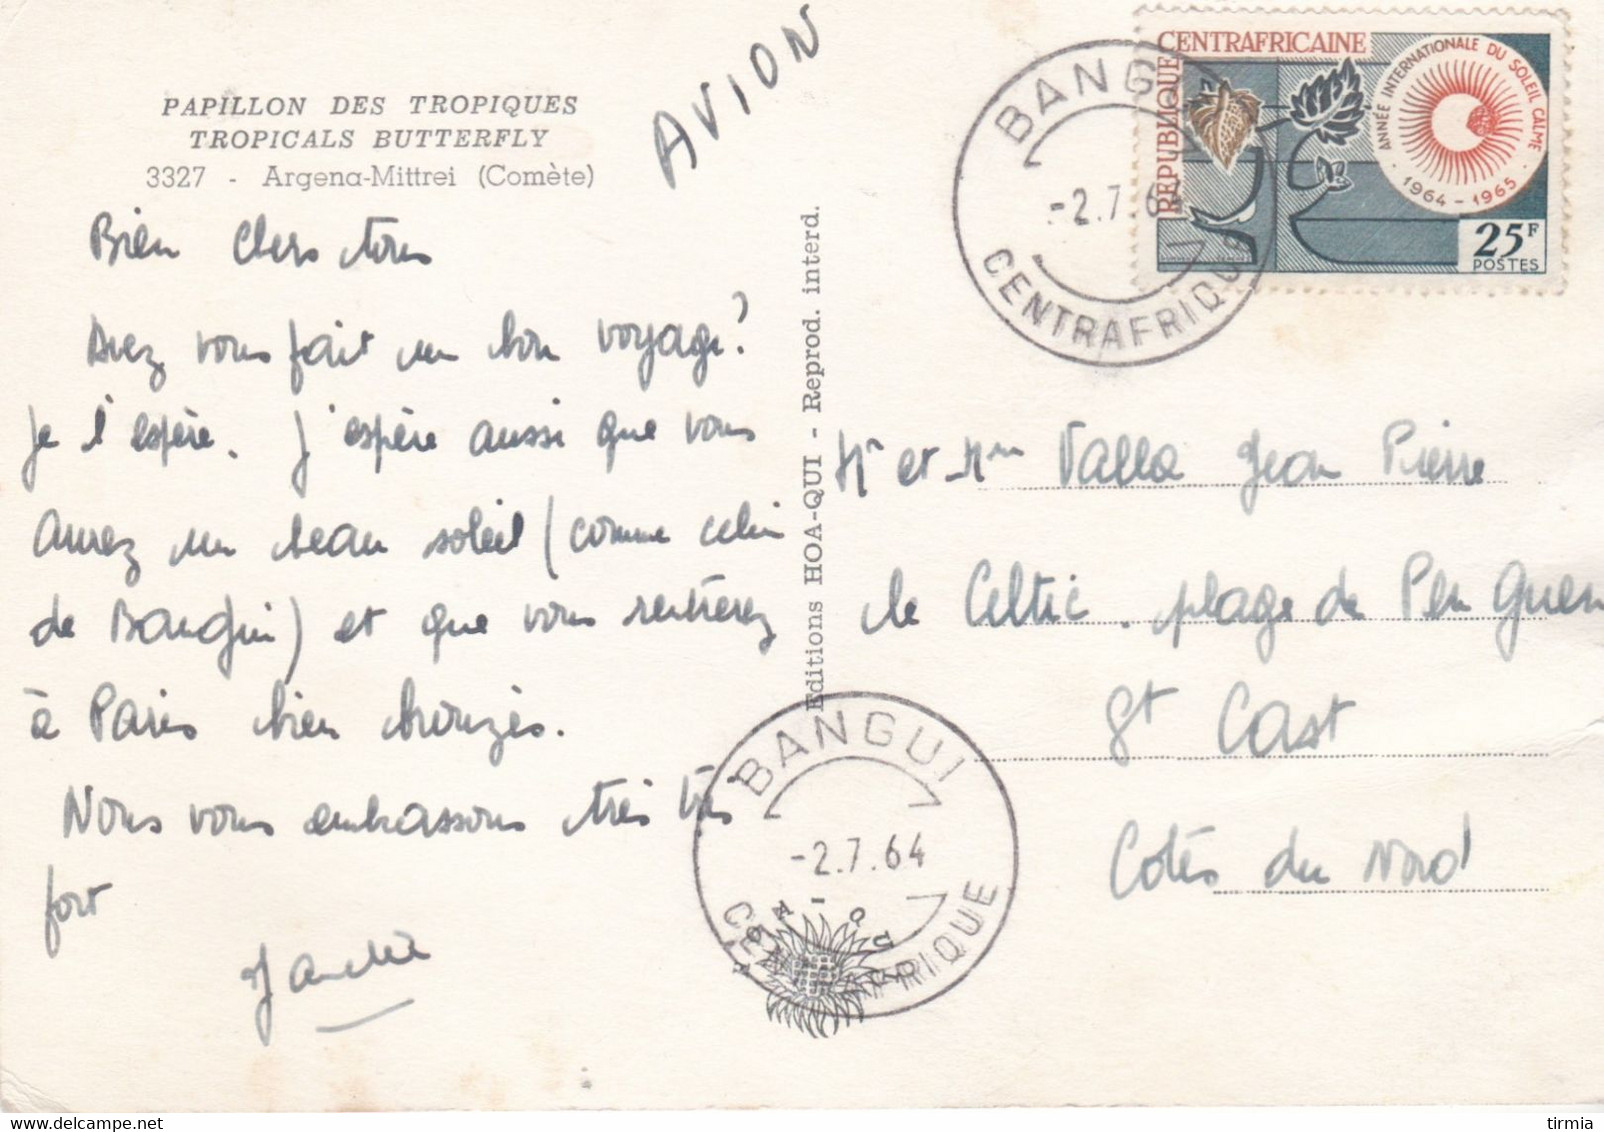 PAPILLON DES TROPIQUES
TROPICALS BUTTERFLY
3327 - Argena-Mittrei (Comète)
AVION
Bien chers tous
Avez vous fait un bon voyage?
Je l'espère. J'espère aussi que vous
aurez un beau soleil (comme celui
de Bangui) et que vous rentrerez
à Paris bien bronzés.
Nous vous embrassons très très
fort
Editions HOA-QUI - Reprod. interd.
BANGUI
-2.7.64
CENTRAFRIQUE
REPUBLIQUE
CENTRAFRICAINE
ANNÉE INTERNATIONALE DU SOLEIL CALME
· 1964-1965 ·
25F
POSTES
Mr et Mme Valla Jean Pierre
le Celtic. plage de Pen Guen
St Cast
Côtes du Nord
BANGUI
-2.7.64
CENTRAFRIQUE
HOA QUI
tirmia